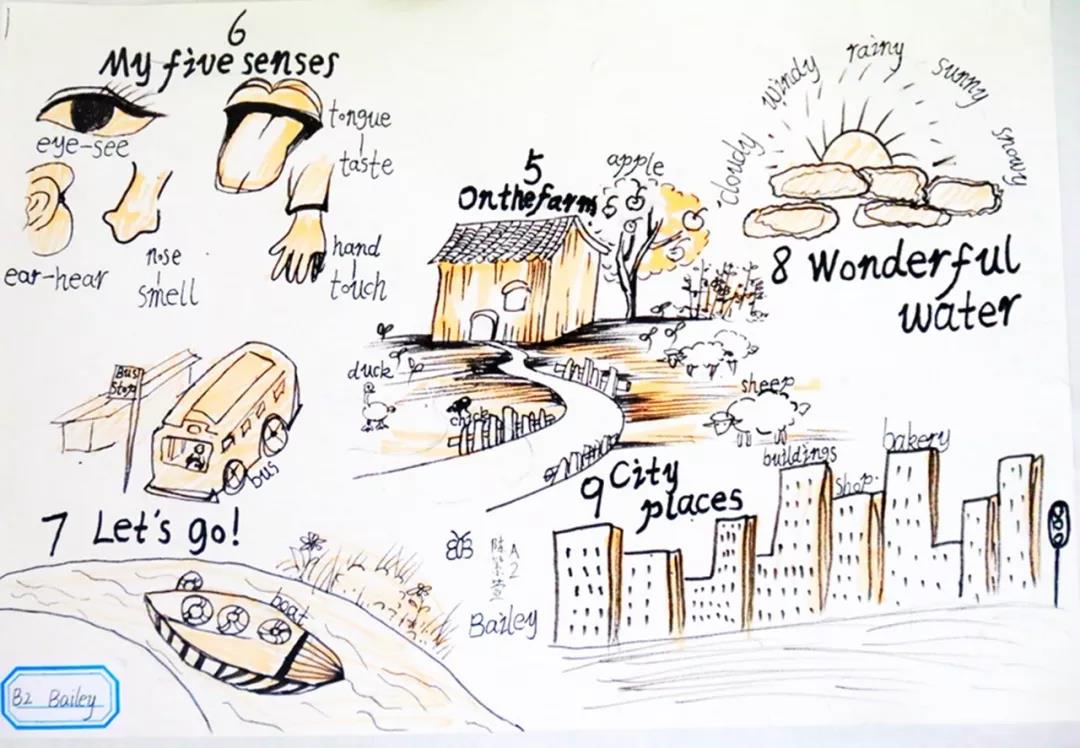 6
My five senses
eye-see
tongue
taste
ear-hear
nose
smell
hand
touch
5
On the farm
apple
duck
chick
sheep
cloudy
windy
rainy
sunny
snowy
8 Wonderful
water
Bus
Stop
bus
7 Let's go!
boat
9 City
places
buildings
shop
bakery
A2
Bailey
B2 Bailey